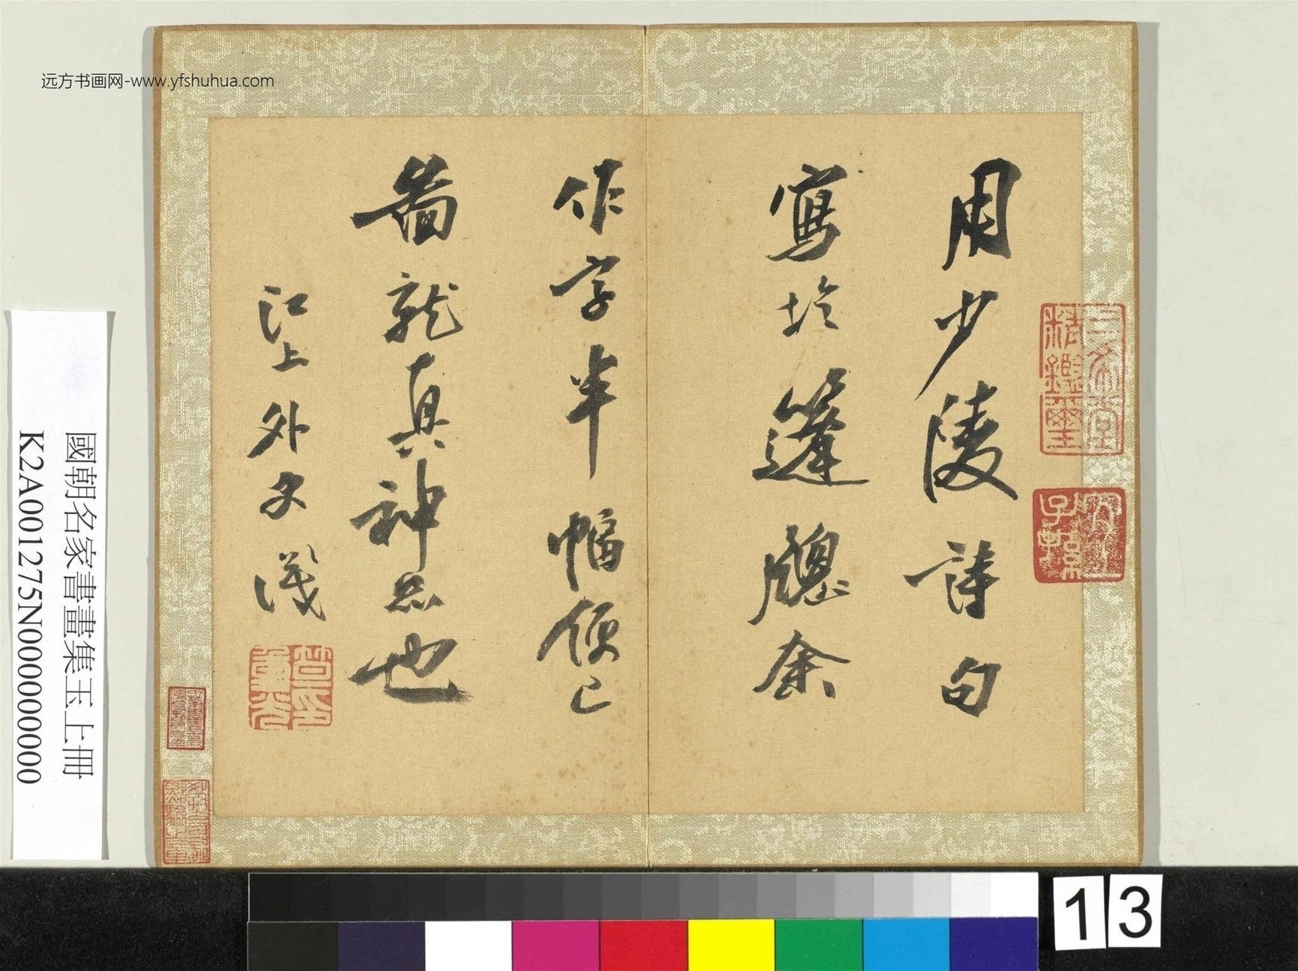 远方书画网-www.yfshuhua.com
用少陵詩句
寫於篷牕余
作字半幅便已
啚就真神品也
江上外史識
三希堂
精鑑璽
宜子孫
笪印重光
國朝名家書畫集玉上冊
K2A001275N000000000
13